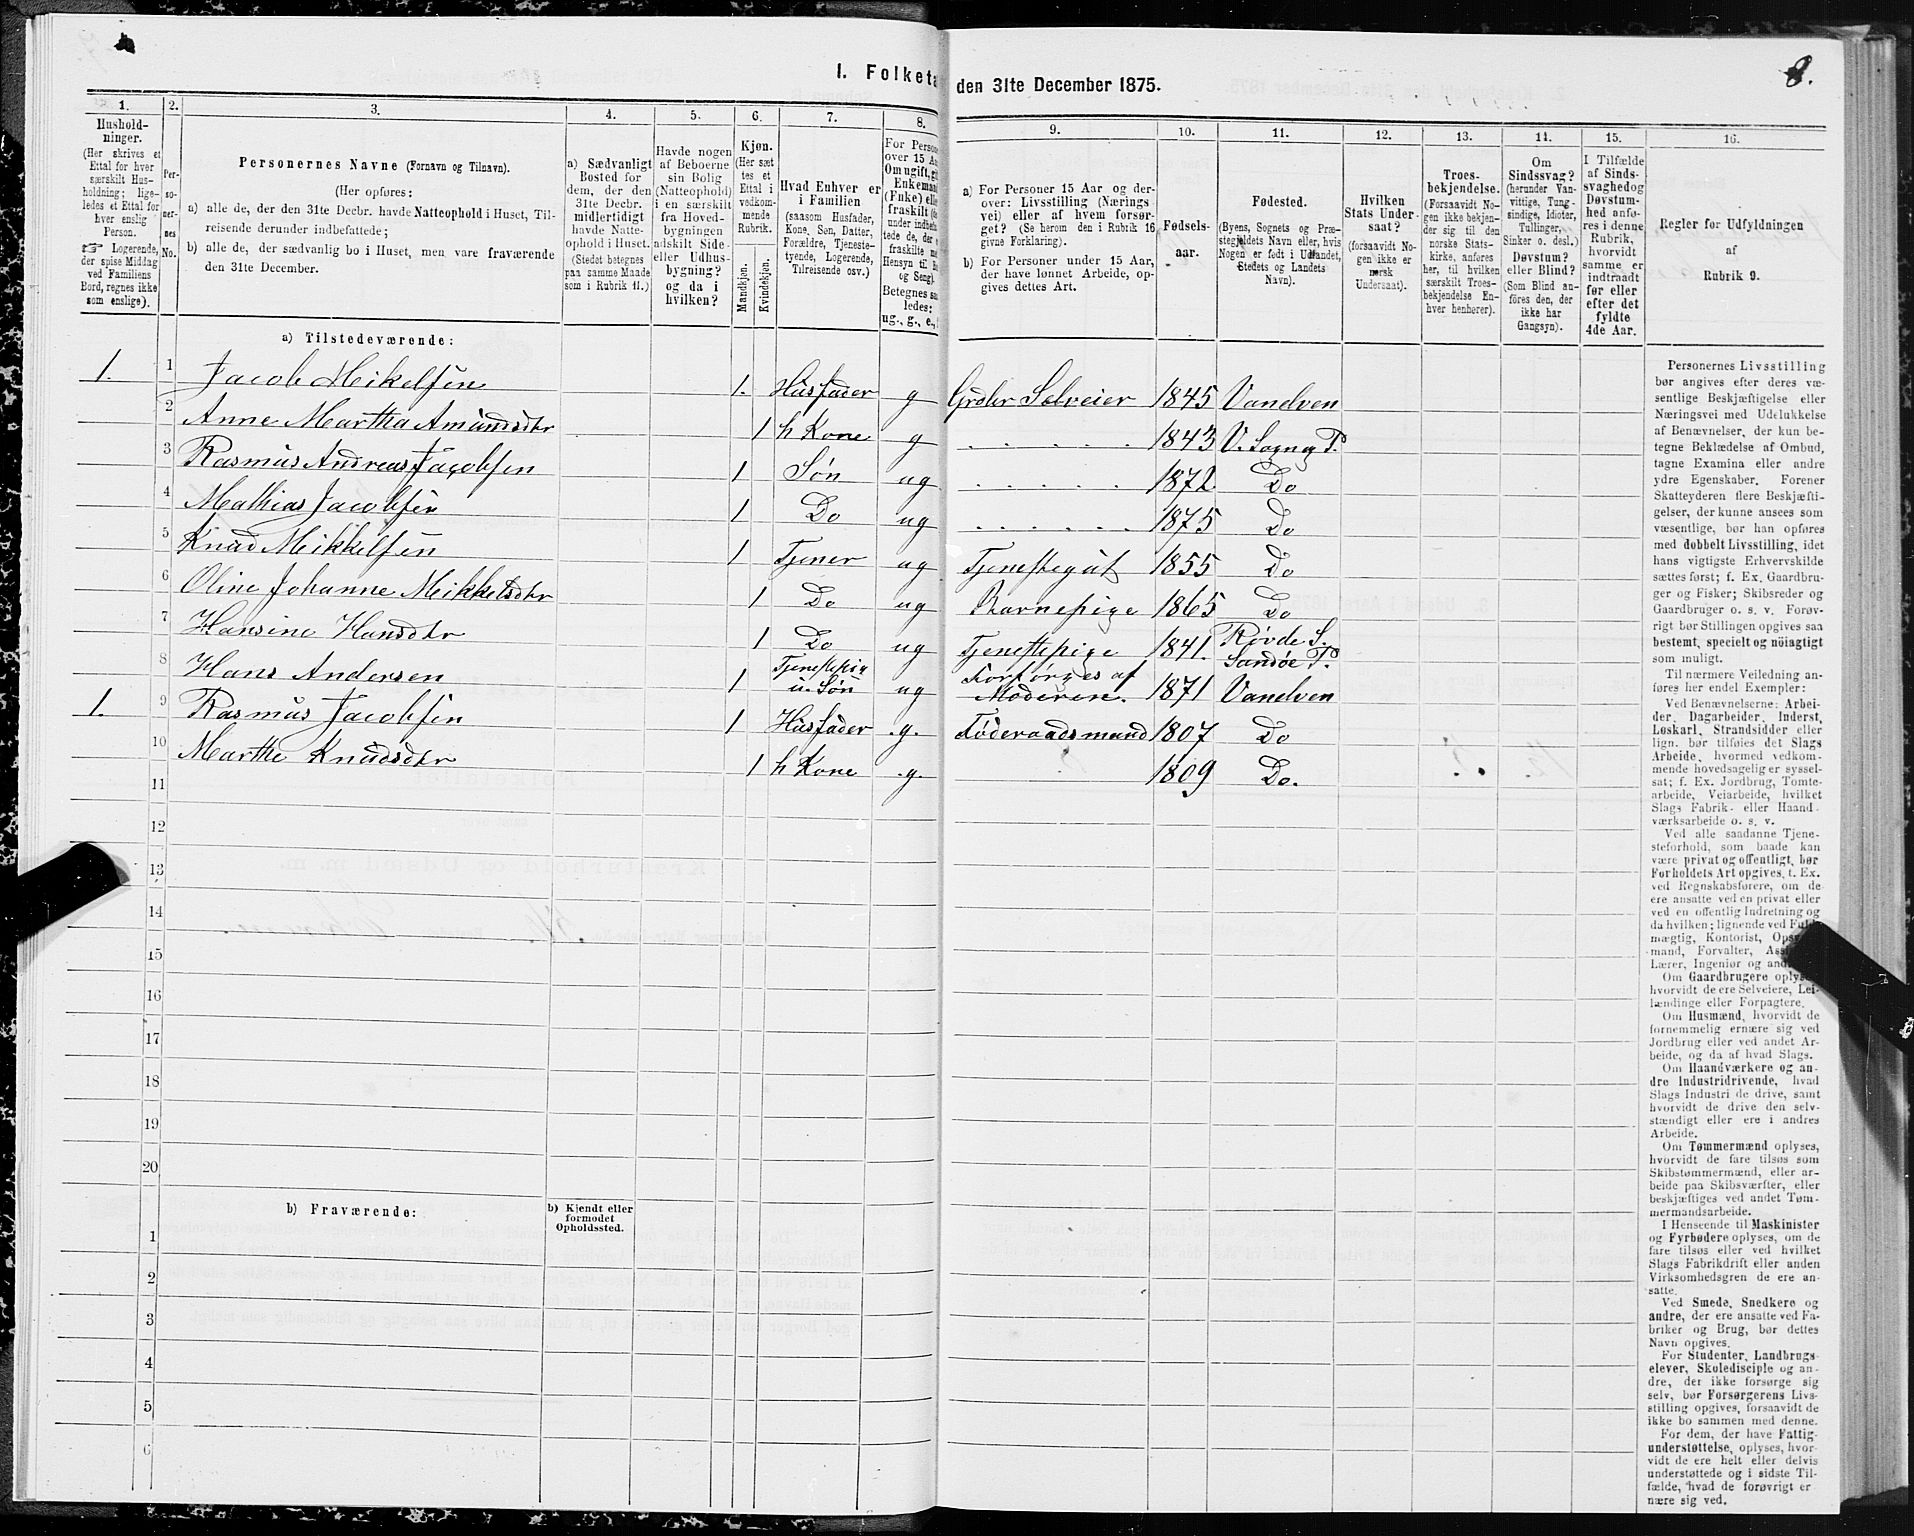 8.
I. Folketa den 31te December 1875.
1. 2. 3. 4. 5. 6. 7. 8. 9. 10. 11. 12. 13. 14. 15. 16.
Hushold-
ninger.
(Her skrives et
Ettal for hver
særskilt Hus-
holdning; lige-
ledes et Ettal for
hver enslig
Person.
☞ Logerende,
der spise Middag
ved Familiens
Bord, regnes ikke
som enslige).
Per-
so-
ner-
nes
No.
Personernes Navne (Fornavn og Tilnavn).
(Her opføres:
a) alle de, der den 31te Decbr. havde Natteophold i Huset, Til-
reisende derunder indbefattede;
b) alle de, der sædvanlig bo i Huset, men vare fraværende
den 31te December.
a) Sædvanligt
Bosted for
dem, der den
31te Decbr.
midlertidigt
havde Natte-
ophold i Huset.
(Stedet betegnes
paa samme Maade
som i Rubrik 11.)
Havde nogen
af Beboerne
sin Bolig
(Natteophold)
i en særskilt
fra Hoved-
bygningen
adskilt Side-
eller Udhus-
bygning?
og da i
hvilken?
Kjøn.
(Her sæt-
tes et
Ettal i
vedkom-
mende
Rubrik.
Mandkjøn.
Kvindekjøn.
Hvad Enhver er
i Familien
(saasom Husfader,
Kone, Søn, Datter,
Forældre, Tjeneste-
tyende, Logerende,
Tilreisende osv.)
For Perso
over 15 Aa
Om ugift, gi
Enkeman
(Enke) elle
fraskilt (
under indbefa
tede de, der
fraskilte m
Hensyn til B
og Seng).
Betegnes saa
ledes:
ug., g., e.,
a) For Personer 15 Aar og der-
over: Livsstilling (Nærings
vei) eller af hvem forsør-
get? (Se herom den i Rubrik 16
givne Forklaring).
b) For Personer under 15 Aar,
der have lønnet Arbeide, op-
gives dettes Art.
Fødsels-
aar.
Fødested.
(Byens, Sognets og Præ-
stegjeldets Navn eller, hvis
Nogen er født i Udlandet,
Stedets og Landets
Navn).
Hvilken
Stats Under-
saat?
(forsaavidt No-
gen ikke er
norsk
Undersaat).
Troes-
bekjendelse.
(Forsaavidt No-
gen ikke bekjen-
der sig til den
norske Stats-
kirke, anføres
her, til hvilken
særskilt Troes-
bekjendelse En-
hver henhører).
Om
Sindssvag?
(herunder Van-
vittige, Tung-
sindige, Idioter,
Tullinger,
Sinker o. desl.)
Døvstum?
eller Blind?
(Som Blind an-
føres den, der
ikke har
Gangsyn).
I Tilfælde
af Sinds-
svaghed og
Døvstum-
hed anfø-
res i denne
Rubrik,
hvorvidt
samme er
indtraadt
før eller
efter det
fyldte
4de Aar.
Regler for Udfyldningen
af
Rubrik 9.
a) Tilstedeværende:
1. 1 Jacob Mikelsen 1. Husfader g Grdbr Selveier 1845 Vandven
2 Anne Martha Amundsdtr 1 h Kone g . . . . . 1843 V. Sogn og P.
3 Rasmus Andreas Jacobsen 1 Søn ug . . . . . 1872 Do
4 Mathias Jacobsen 1 Do ug . . . . . 1875 Do
5 Knud Mikkelsen 1 Tjener ug Tjenestegut 1855 Do
6 Oline Johanne Mikkelsdtr 1 Do ug Barnepige 1865 Do
7 Hansine Hansdtr 1 Do ug Tjenestepige 1841. Røvde S.
Sandøe P.
8 Hans Andersen 1 Tjenestepig
u. Søn ug Forsørges af
Moderen. 1871 Vandven
1. 9 Rasmus Jacobsen 1 Husfader .g. Føderaadsmand 1807 Do
10 Marthe Knudsdtr 1 h Kone .g. 1809 Do.
11
12
13
14
15
16
17
18
19
20
b) Fraværende:
b) Kjendt eller
formodet
Opholdssted.
1
2
3
4
5
6
Personernes Livsstilling
bør angives efter deres væ-
sentlige Beskjæftigelse eller
Næringsvei med Udelukkelse
af Benævnelser, der kun be-
tegne Beklædelse af Ombud,
tagne Examina eller andre
ydre Egenskaber. Forener
Skatteyderen flere Beskjæfti-
gelser, der kunne ansees som
væsentlige, bør han opføres
med dobbelt Livsstilling, idet
hans vigtigste Erhvervskilde
sættes først; f. Ex. Gaardbru-
ger og Fisker; Skibsreder og
Gaardbruger o. s. v. Forøv-
rigt bør Stillingen opgives saa
bestemt, specielt og nøiagtigt
som muligt.
Til nærmere Veiledning an-
føres her endel Exempler:
Ved Benævnelserne: Arbei-
der, Dagarbeider, Inderst,
Løskarl, Strandsidder eller
lign. bør tilføies det Slags
Arbeide, hvormed vedkom-
mende hovedsagelig er syssel-
sat; f. Ex. Jordbrug, Tomte-
arbeide, Veiarbeide, hvilket
Slags Fabrik- eller Haand-
værksarbeide o. s. v.
Ved alle saadanne Tjene-
steforhold, som baade kan
være privat og offentligt, bør
Forholdets Art opgives, t. Ex.
ved Regnskabsførere, om de
ere ansatte ved en privat eller
ved en offentlig Indretning og
da hvilken; lignende ved Fuld-
mægtig, Kontorist, Opsyns-
mand, Forvalter, Assi
Lærer, Ingeniør og and
Om Gaardbrugere oplyses,
hvorvidt de ere Selveiere, Lei-
lændinge eller Forpagtere.
Om Husmænd, hvorvidt de
fornemmelig ernære sig ved
Jordbrug eller ved andet Ar-
beide, og da af hvad Slags.
Om Haandværkere og an-
dre Industridrivende, hvad
Slags Industri de drive, samt
hvorvidt de drive den selv-
stændigt eller ere i andres
Arbeide.
Om Tømmermænd oplyses,
hvorvidt de fare tilsøs som
Skibstømmermænd, eller ar-
beide paa Skibsværfter, eller
beskjæftiges ved andet Tøm-
mermandsarbeide.
I Henseende til Maskinister
og Fyrbødere oplyses, om de
fare tilsøs eller ved hvilket
Slags Fabrikdrift eller anden
Virksomhedsgren de ere an-
satte.
Ved Smede, Snedkere og
andre, der ere ansatte ved Fa-
briker og Brug, bør dettes
Navn opgives.
For Studenter, Landbrugs-
elever, Skoledisciple og an-
dre, der ikke forsørge sig
selv, bør Forsørgerens Livs-
stilling opgives, forsaavidt de
ikke bo sammen med denne.
For dem, der have Fattig-
understøttelse, oplyses, hvor-
vidt de ere helt eller delvis
understøttede og i sidste Til-
fælde, hvad de forøvrigt er-
nære sig ved.